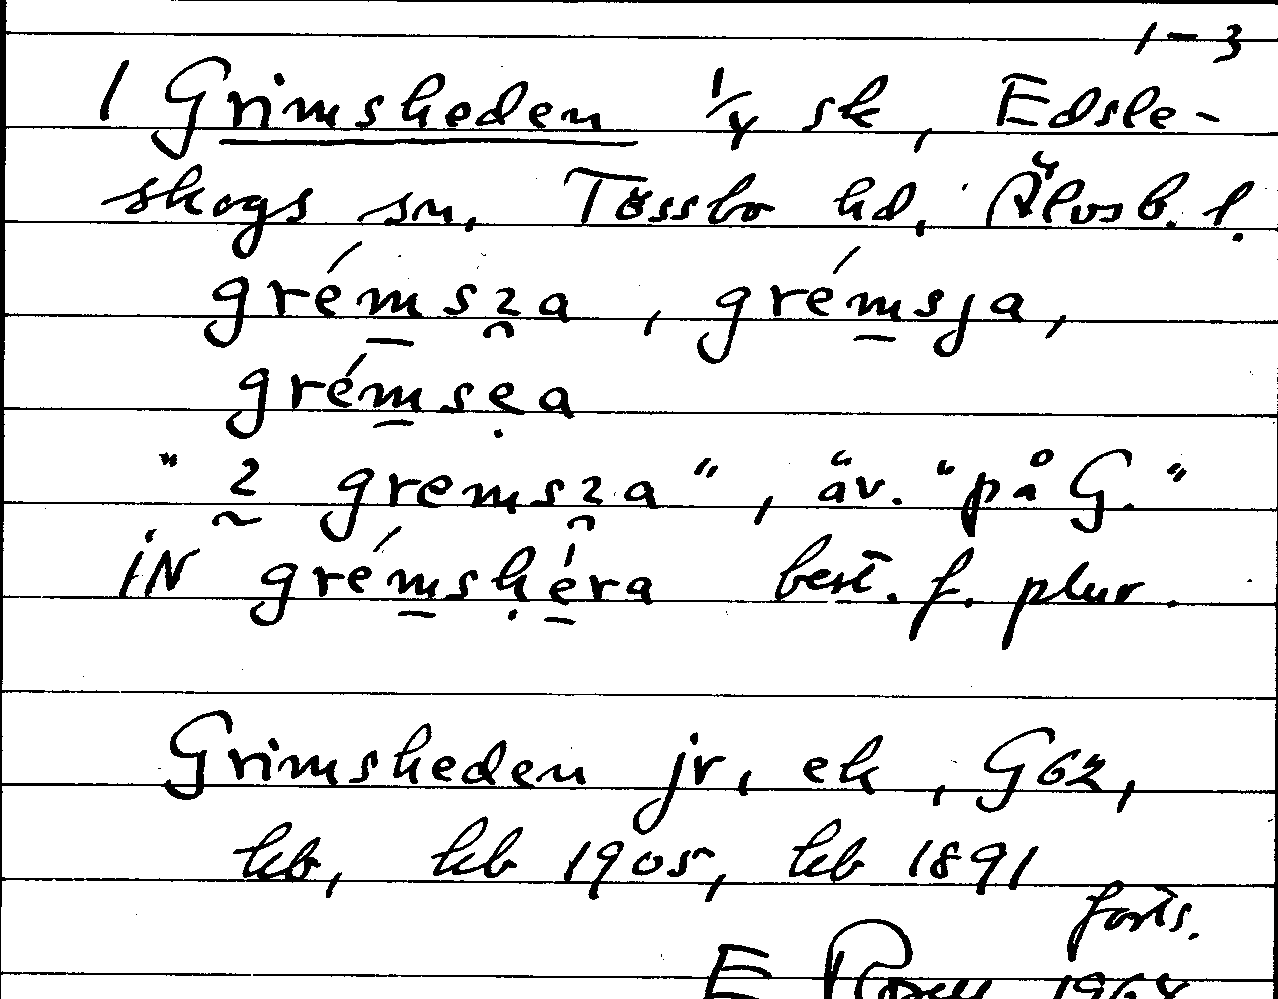 1-3
1 Grimsheden 1/4 sk, Edsle-
skogs sn, Tössbo hd, Älvsb. l.
grémsꝛa, grémsja,
grémsẹa
"ꝛ gremsꝛa", äv. "på G."
IN grémsḥéra best. f. plur.
Grimsheden jr, ek, G62,
kb, kb 1905, kb 1891
forts.
E 1968